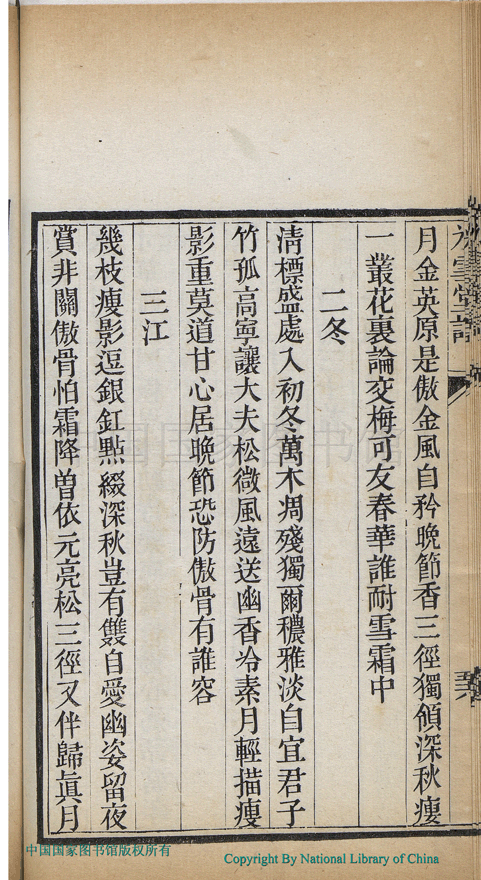 月金英原是傲金風自矜晚節香三徑獨傾深秋瘦
一叢花裏論交梅可友春華誰耐雪霜中
二冬
清標盛處入初冬萬木凋殘獨爾穠雅淡自宜君子
竹孤高寧讓大夫松微風遠送幽香冷素月輕描瘦
影重莫道甘心居晚節恐防傲骨有誰容
三江
幾枝瘦影逗銀釭點綴深秋豈有雙自愛幽姿留夜
賞非關傲骨怕霜降曾依元亮松三徑又伴歸真月
中国国家图书馆版权所有
Copyright By National Library of China